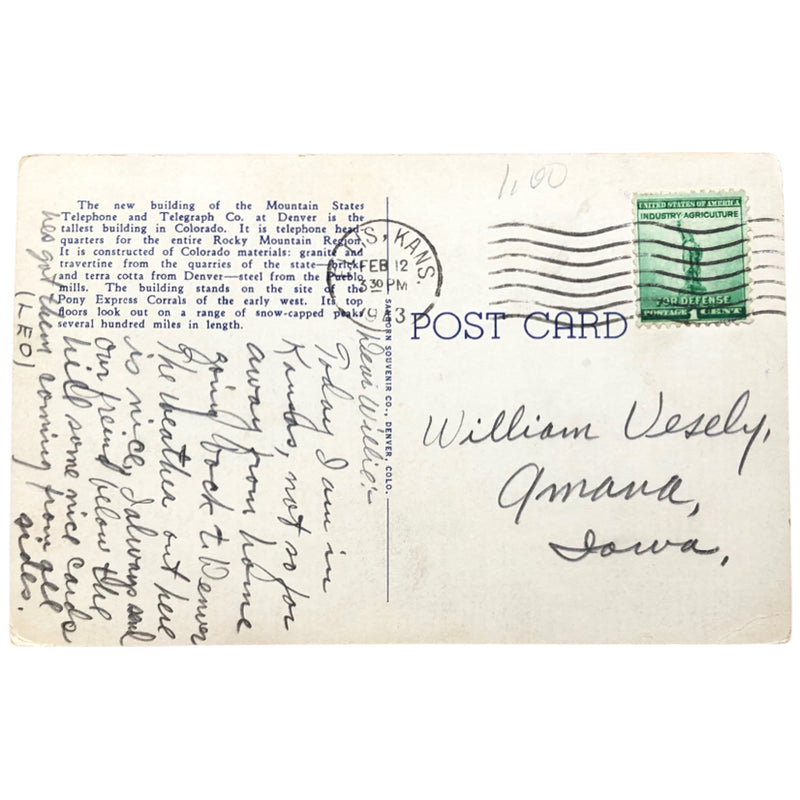 The new building of the Mountain States
Telephone and Telegraph Co. at Denver is the
tallest building in Colorado. It is telephone head-
quarters for the entire Rocky Mountain Region.
It is constructed of Colorado materials: granite and
travertine from the quarries of the state—bricks
and terra cotta from Denver—steel from the Pueblo
mills. The building stands on the site of the
Pony Express Corrals of the early west. Its top
floors look out on a range of snow-capped peaks
several hundred miles in length.
Dear Willie:-
Today I am in
Kansas, not so far
away from home
going back to Denver
The weather out here
is nice, I always send
our freind below the
hill some nice cards
hes got them coming from all
sides.
(LEO)
SANBORN SOUVENIR CO., DENVER, COLO.
S, KANS.
FEB 12
3 30 PM
1943
1.00
UNITED STATES OF AMERICA
INDUSTRY AGRICULTURE
FOR DEFENSE
POSTAGE 1 CENT
POST CARD
William Vesely,
Amana,
Iowa,